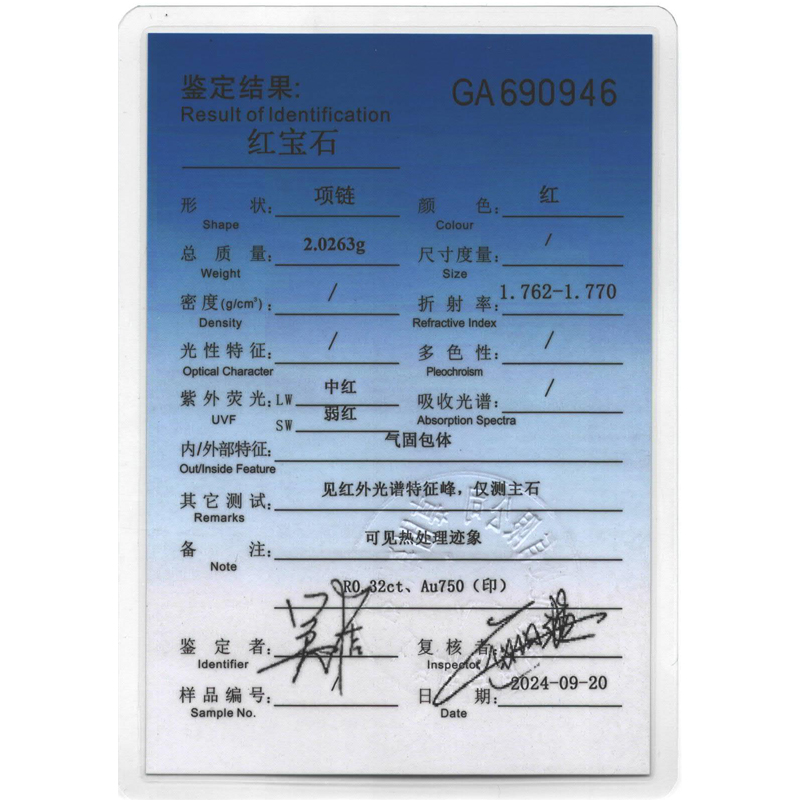 鉴定结果:
GA690946
Result of Identification
红宝石
形 状: 项链
颜 色: 红
Shape
Colour
总 质 量: 2.0263g
尺寸度量: /
Weight
Size
密 度(g/cm³): /
折 射 率: 1.762-1.770
Density
Refractive Index
光 性 特 征: /
多 色 性: /
Optical Character
Pleochroism
紫 外 荧 光: LW 中红
吸收光谱: /
UVF
SW 弱红
Absorption Spectra
内/外部特征: 气固包体
Out/Inside Feature
其 它 测 试: 见红外光谱特征峰，仅测主石
Remarks
备 注: 可见热处理迹象
Note
R0.32ct、Au750（印）
鉴 定 者:
复 核 者:
Identifier
Inspector
样 品 编 号:
日 期: 2024-09-20
Sample No.
Date